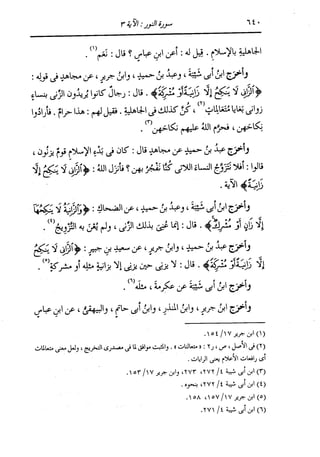 ٦٤٠ سورة النور : الآية ٣
الجاهلية بالإسلام . قيل له : أعن ابن عباس ؟ قال : نعم (١) .
وأخرج ابن أبى شيبة ، وعبد بن حميد ، وابن جرير ، عن مجاهد فى قوله :
﴿الزَّانِى لَا يَنكِحُ إِلَّا زَانِيَةً أَوْ مُشْرِكَةً﴾ . قال : رجال كانوا يريدون الزنى بنساء
زوانى بغايا متعالمات (٢) ، كنّ كذلك فى الجاهلية . فقيل لهم : هذا حرام . فأرادوا
نكاحهن ، فحرم الله عليهم نكاحهن (٣) .
وأخرج عبد بن حميد عن مجاهد قال : كان فى بدء الإسلام قوم يزنون ،
قالوا : أفلا نتزوج النساء اللاتى كنا نفجر بهن ؟ فأنزل الله : ﴿الزَّانِى لَا يَنكِحُ إِلَّا
زَانِيَةً﴾ الآية .
وأخرج ابن أبى شيبة ، وعبد بن حميد ، عن الضحاك : ﴿وَالزَّانِيَةُ لَا يَنكِحُهَا
إِلَّا زَانٍ أَوْ مُشْرِكٌ﴾ . قال : إنما عنى بذلك الزنى ، ولم يعن به التزويج (٤) .
وأخرج عبد بن حميد ، وابن جرير ، عن سعيد بن جبير : ﴿الزَّانِى لَا يَنكِحُ
إِلَّا زَانِيَةً أَوْ مُشْرِكَةً﴾ . قال : لا يزنى حين يزنى إلا بزانية مثله أو مشركة (٥) .
وأخرج ابن أبى شيبة عن عكرمة ، مثله (٦) .
وأخرج ابن جرير ، وابن المنذر ، وابن أبى حاتم ، والبيهقى ، عن ابن عباس
(١) ابن جرير ١٧/ ١٥٤.
(٢) فى الأصل ، ص ، ر ٢ : « متعالنات » . والمثبت موافق لما فى مصدرى التخريج ، ولعل معنى متعالمات
أى رافعات الأعلام يعنى الرايات .
(٣) ابن أبى شيبة ٤/ ٢٧٢، ٢٧٣، وابن جرير ١٧/ ١٥٣.
(٤) ابن أبى شيبة ٤/ ٢٧٢، بنحوه .
(٥) ابن جرير ١٧/ ١٥٧، ١٥٨.
(٦) ابن أبى شيبة ٤/ ٢٧١.